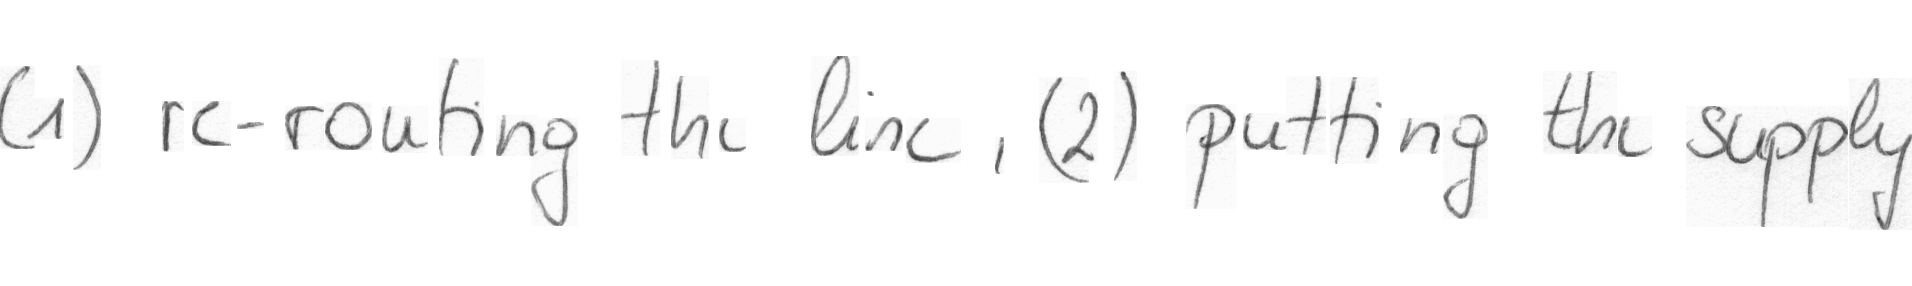 (1) re-routing the line, (2) putting the supply